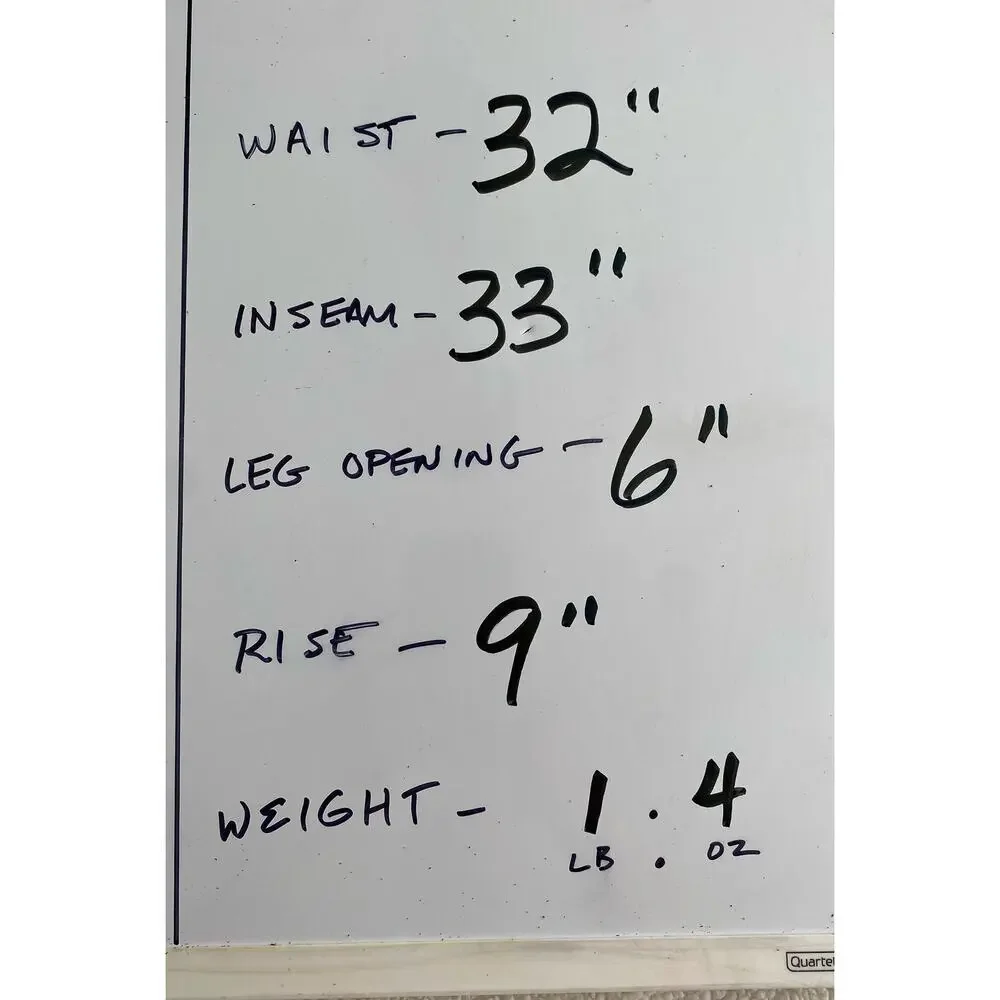 WAIST - 32"
INSEAM - 33"
LEG OPENING - 6"
RISE - 9"
WEIGHT - 1 . 4
LB . OZ